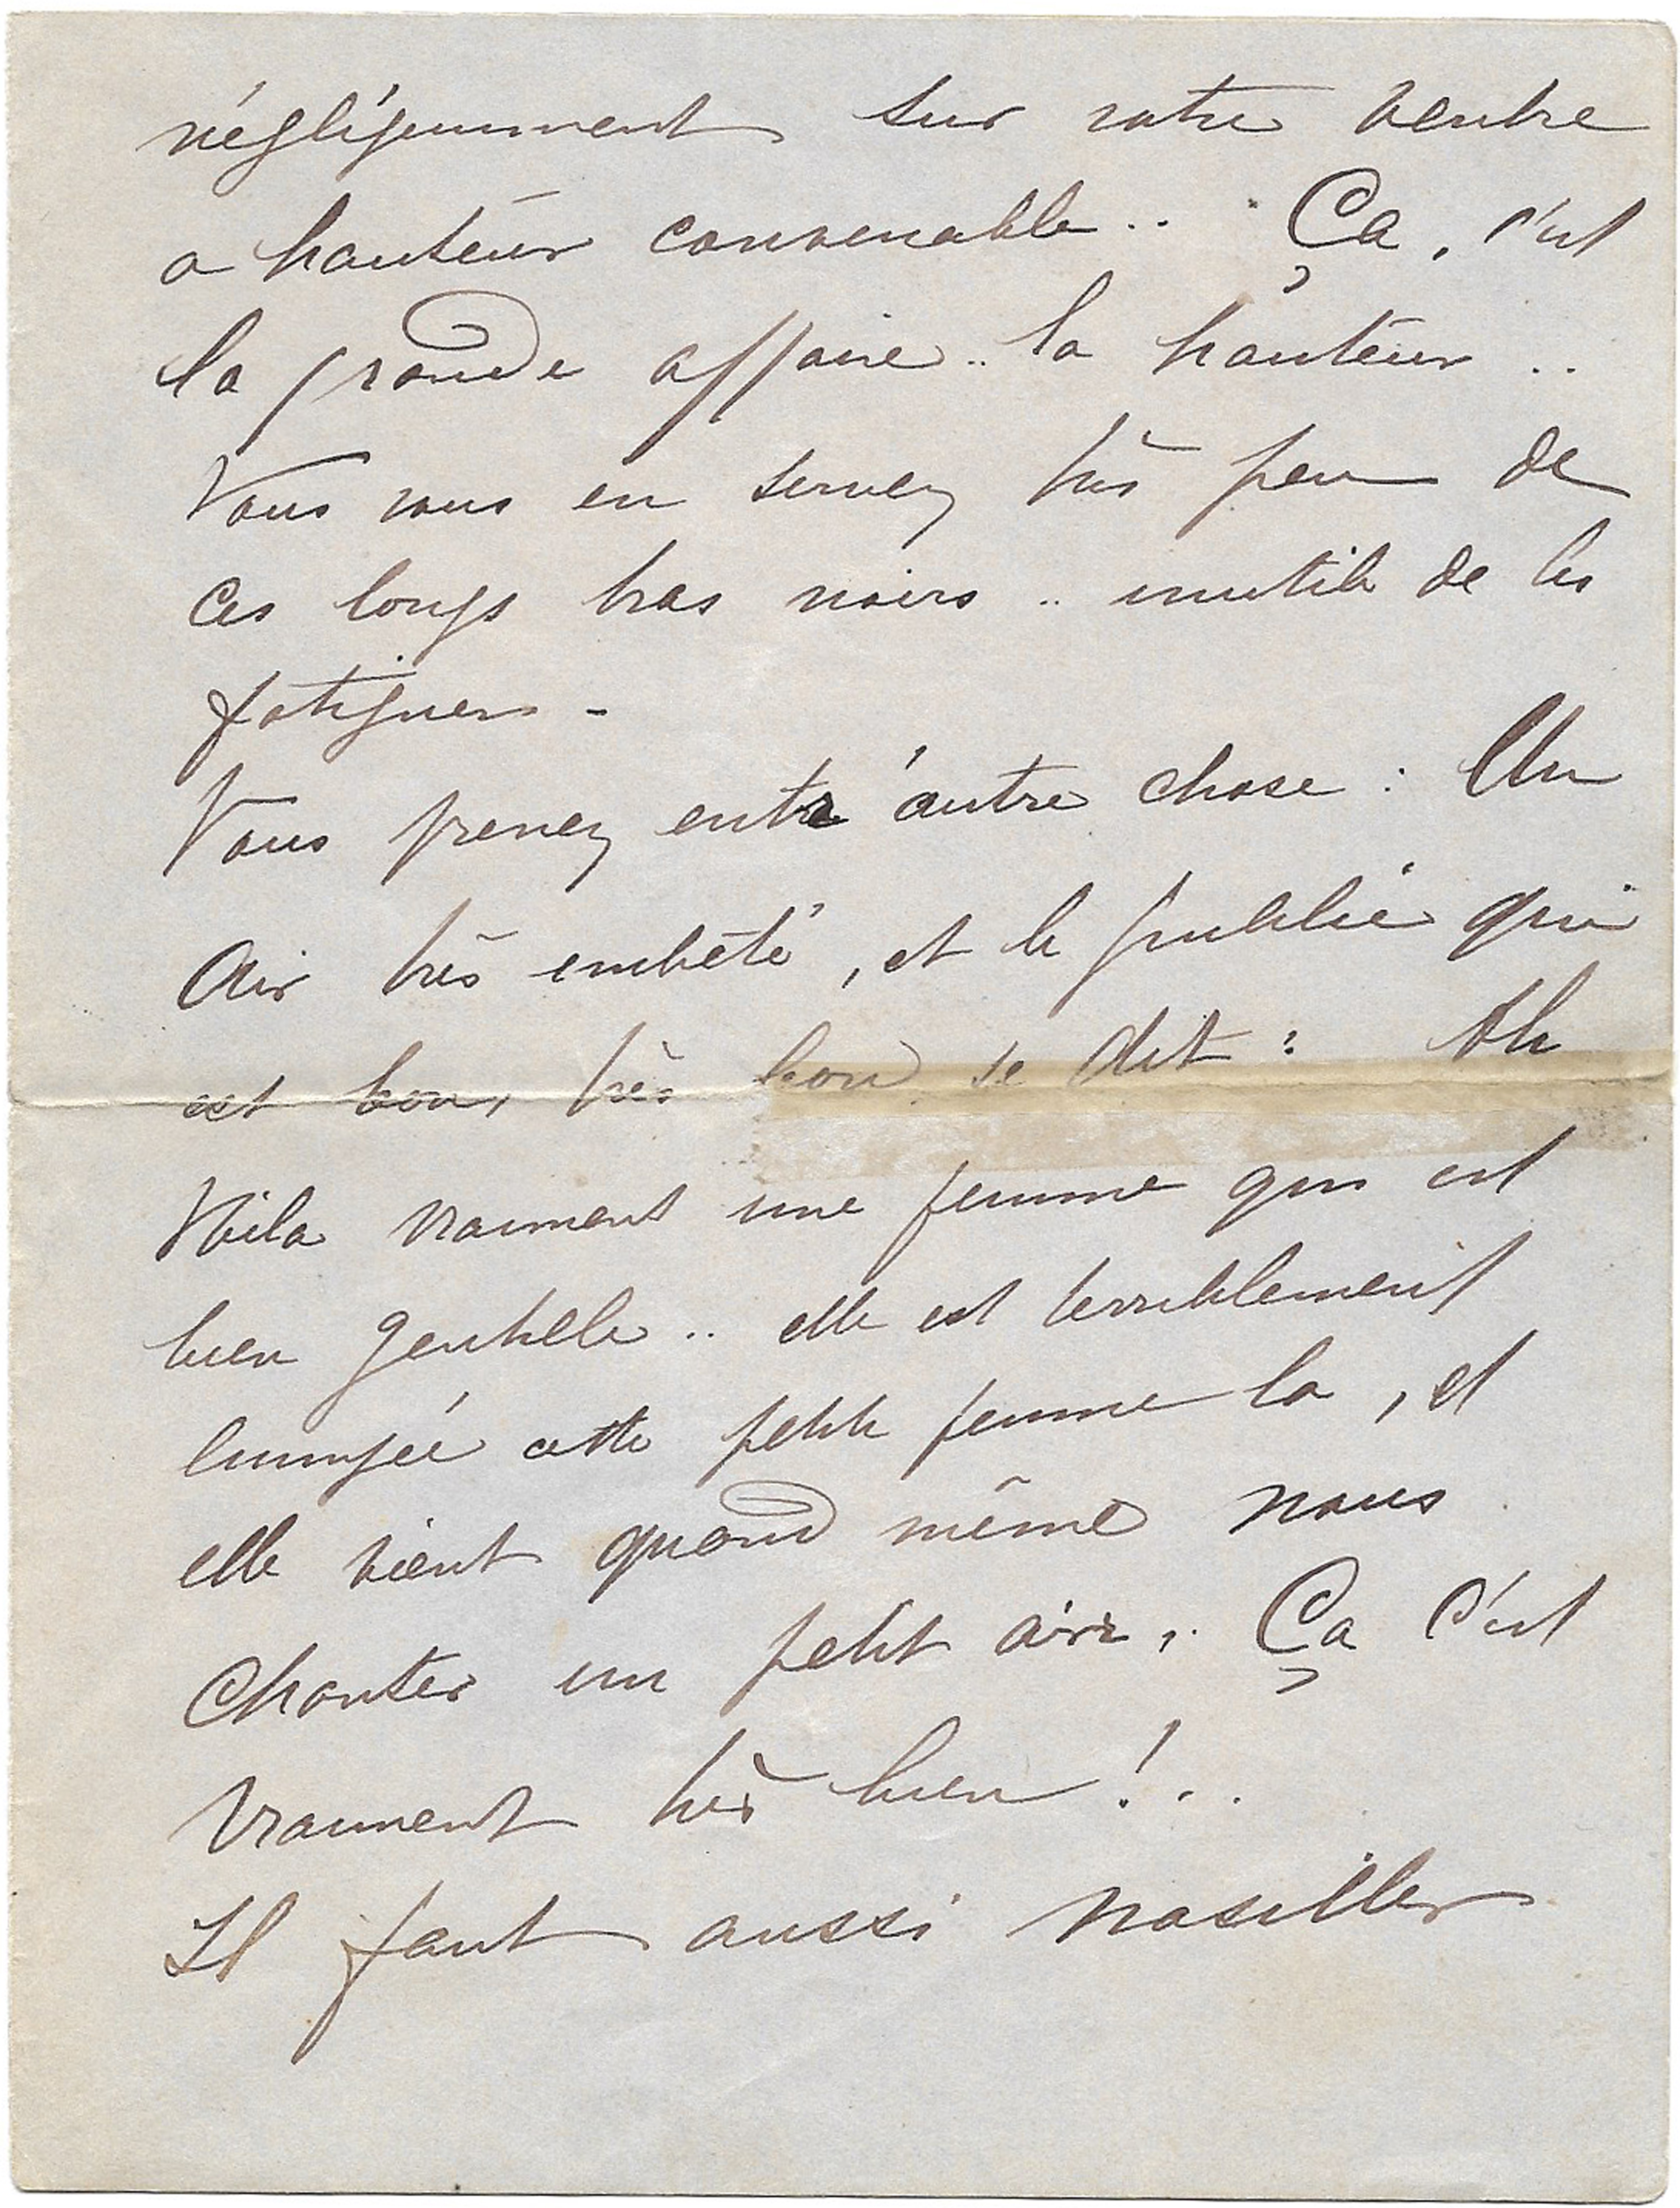 négligemment sur votre ventre
a hauteur convenable .. Ça, c'est
la grande affaire .. la hauteur ..
Vous vous en servez très peu de
ces longs bras noirs .. inutile de les
fatiguer -
Vous prenez entr'autre chose : Un
air très embêté, et le public qui
est bon, très bon se dit : Ah
Voila vraiment une femme qui est
bien gentille .. elle est terriblement
changée cette petite femme la, et
elle vient quand même nous
chanter un petit air. Ça c'est
vraiment très bien ! ..
Il faut aussi nasiller